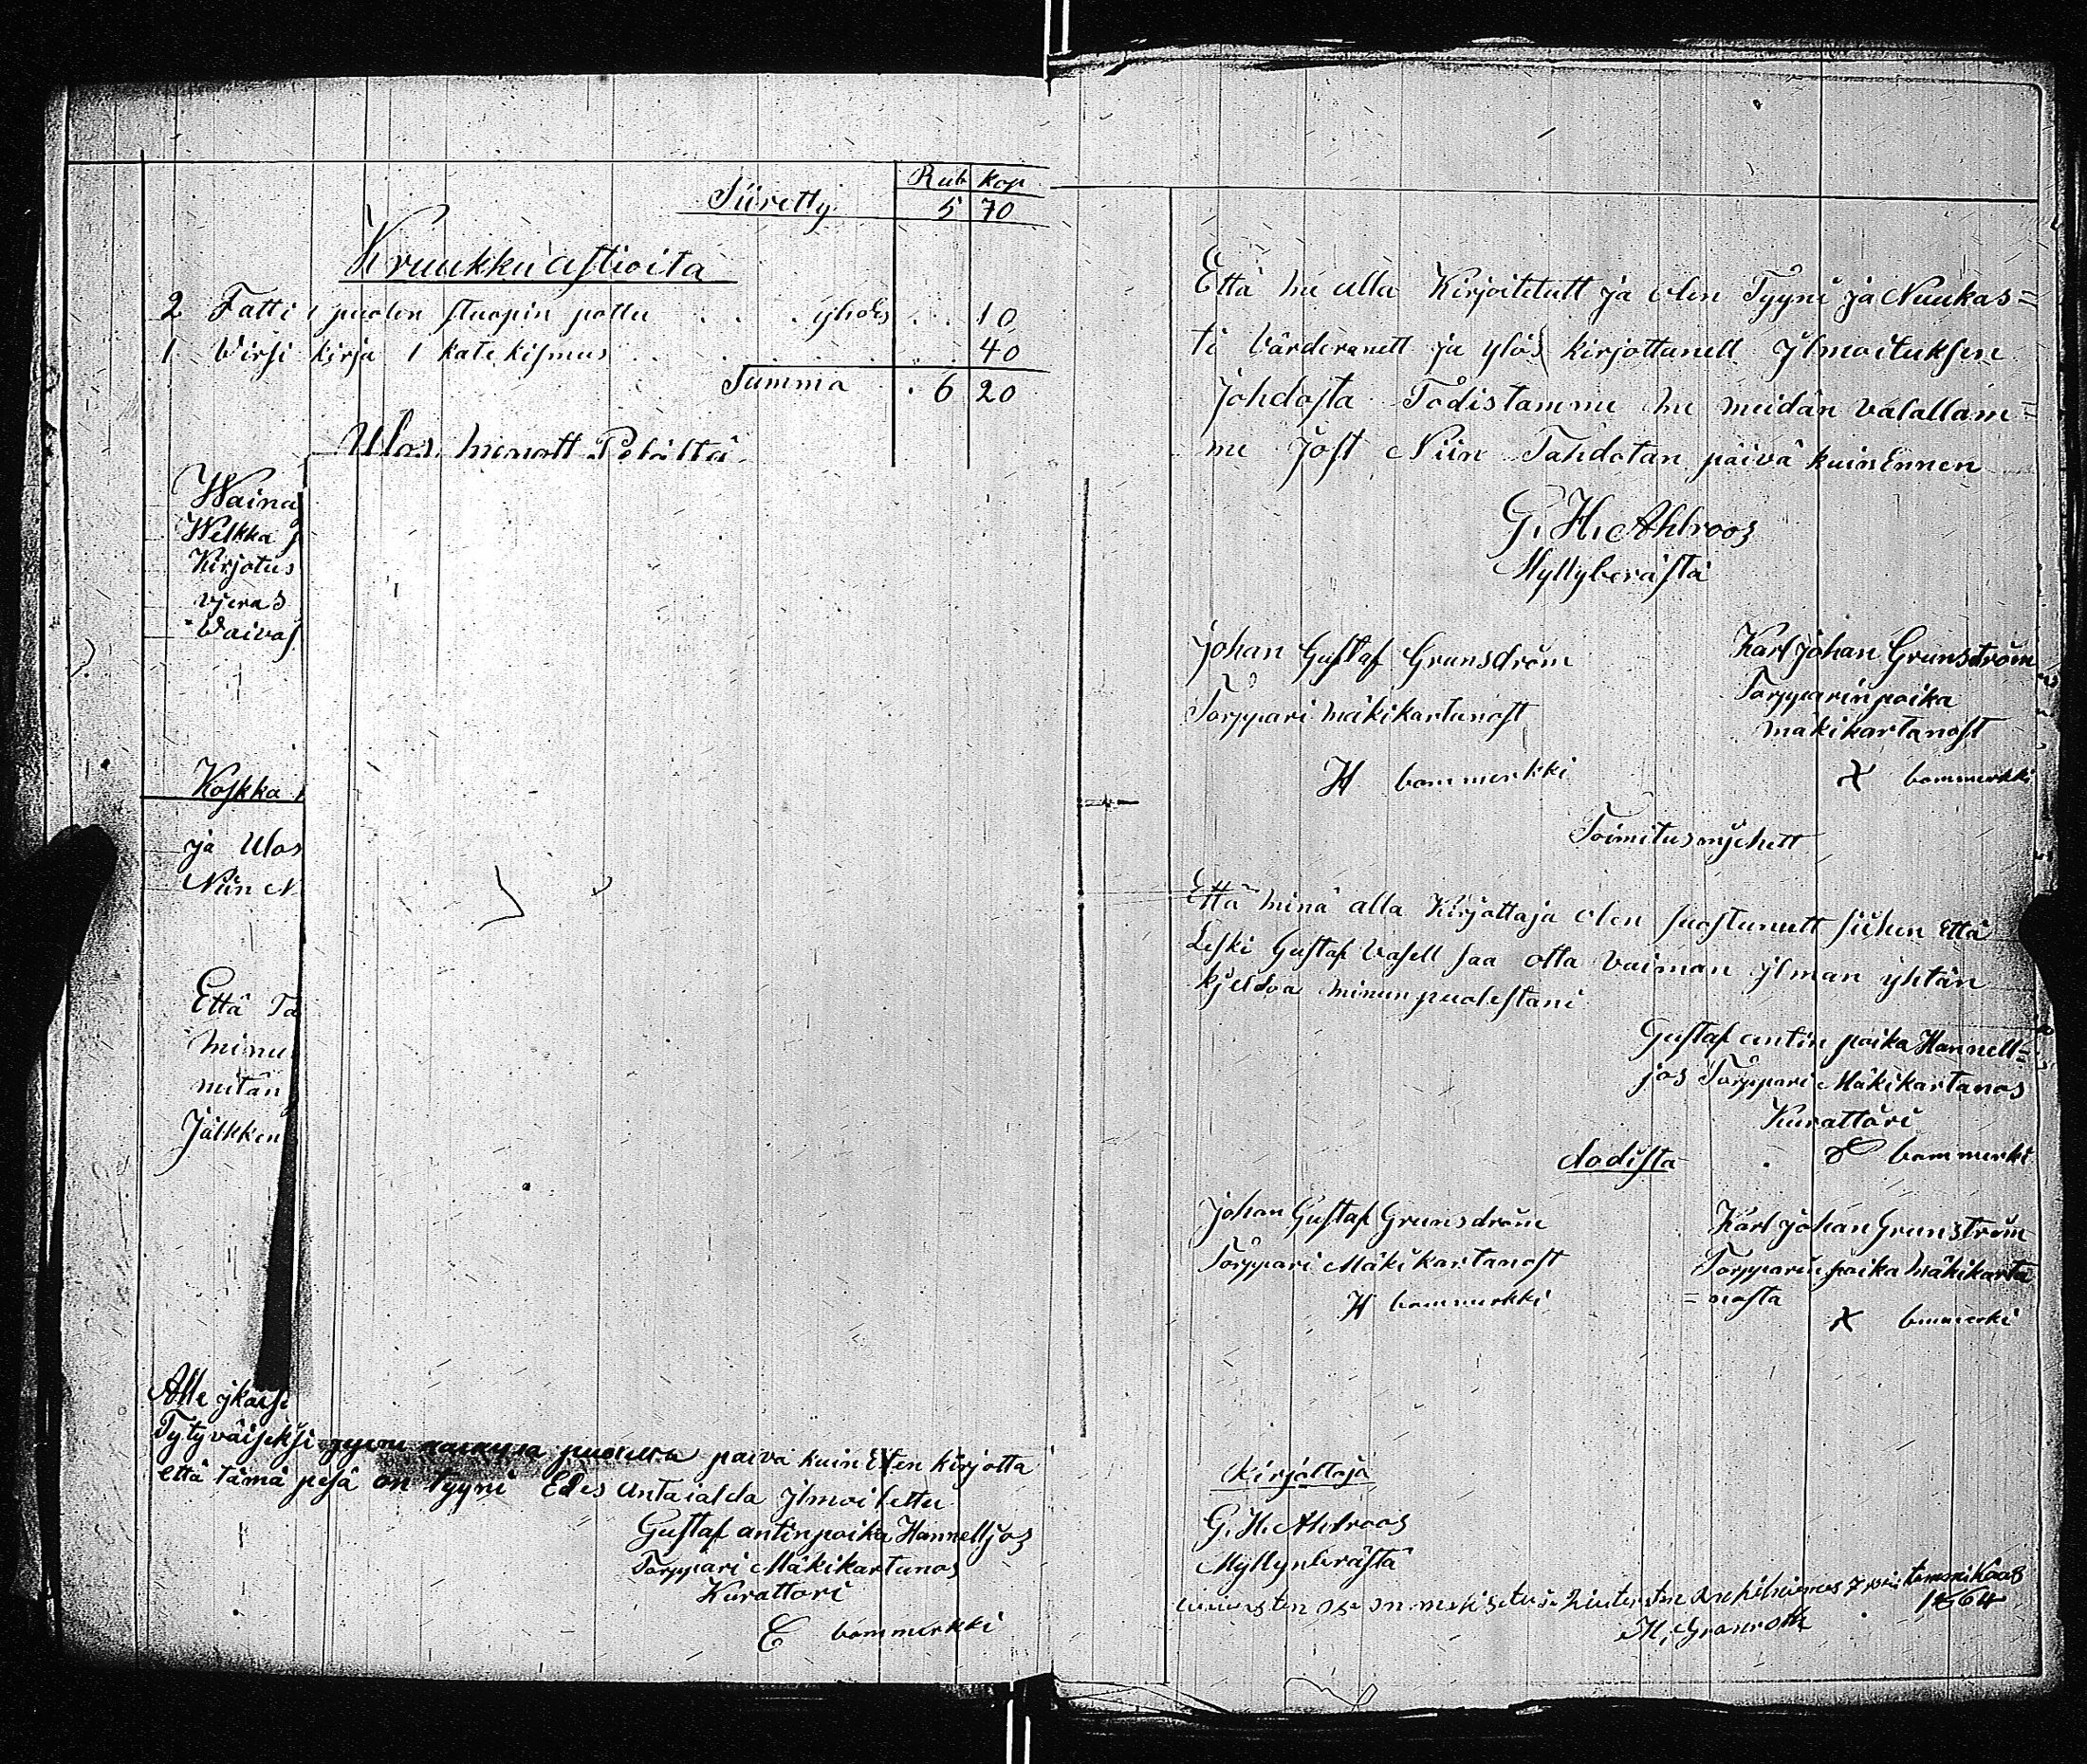 Rub kop
Siiretty 5 70
Kruukku astioita
2 Fatti 1 puolen stuopin pottu . . . yhdes . . 10
1 Virsi kirja 1 katekismus . . . 40
Summa . 6 20
Ulos menott Pesältä
Waina
Welkka
Kirjotus
vjeras
Vaivas
Koskka
ja Ulos
Niin N
Että Tä
minu
mitän
Jälkken
Alle
Tytyväiseksi päivä kuin Eten kirjotta
että tämä pesä on tyyni Edes Antaialda ylmoitettu
Gustaf antinpoika Hannelljos
Torppari Mäkikartanos
Kurattori
C bommerkki
Että me alla Kirjoitetutt ja olen Tyyni ja Nuukas=
ti värderanett ja ylös kirjottanett ylmoituksen
johdosta Todistamme me meidän valallam=
me jost Niin Tahdotan päivä kuin Ennen
G. H. Ahlroos
Myllyberästä
Johan Gustaf Grunsdröm
Torppari mäkikartanost
H bommerkki
Karl johan Grunström
Torpparinpoika
mäkikartanost
X bommerkki
Toimitusmjehett
Että minä alla Kirjottaja olen suostunutt siihen Että
Leski Gustaf Vasell saa otta vaiman ylman yhtän
kjeldoa minun puolestani
Gustaf antin poika Hannell=
jos Torppari Mäkikartanos
Kurattori
bommerki
dodista
Johan Gustaf Grunsdröm
Torppari Mäkikartanost
H bommerkki
Karl johan Grunström
Torpparin poika mäkikarta
=nosta
X bmmerki
Kirjottaja
G. H. Ahlroos
Myllynberästä
tammikuus
1864
H. Granroth